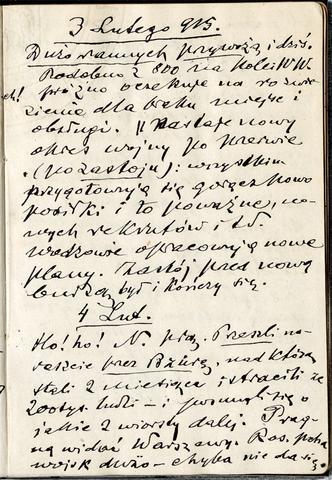 3 Lutego 915.
Dużo rannych przywożą i dziś.
Podobno z 800 na kolei WW.
próżno oczekuje na rozwie
zienie dla braku miejsc i
obsługi. || Nastaje nowy
okres wojny po przerwie
(po zastoju): wszystkim
przygotowują się gorączkowo
posiłki i to poważne, no-
wych rekrutów i t.d.
wodzowie opracowują nowe
plany. Zastój przed nową
burzą, był i kończy się.
4 Lut.
Ho! ho! N. pisz. Przeszli na-
reszcie przez Bzurę, nad którą
stali 2 miesiące i stracili ze
200 tys. ludzi – i posunęli się o
jakie 2 wiorsty dalej. Prag-
ną widać Warszawy. Ros. potra
wojsk dużo – chyba nie da się.